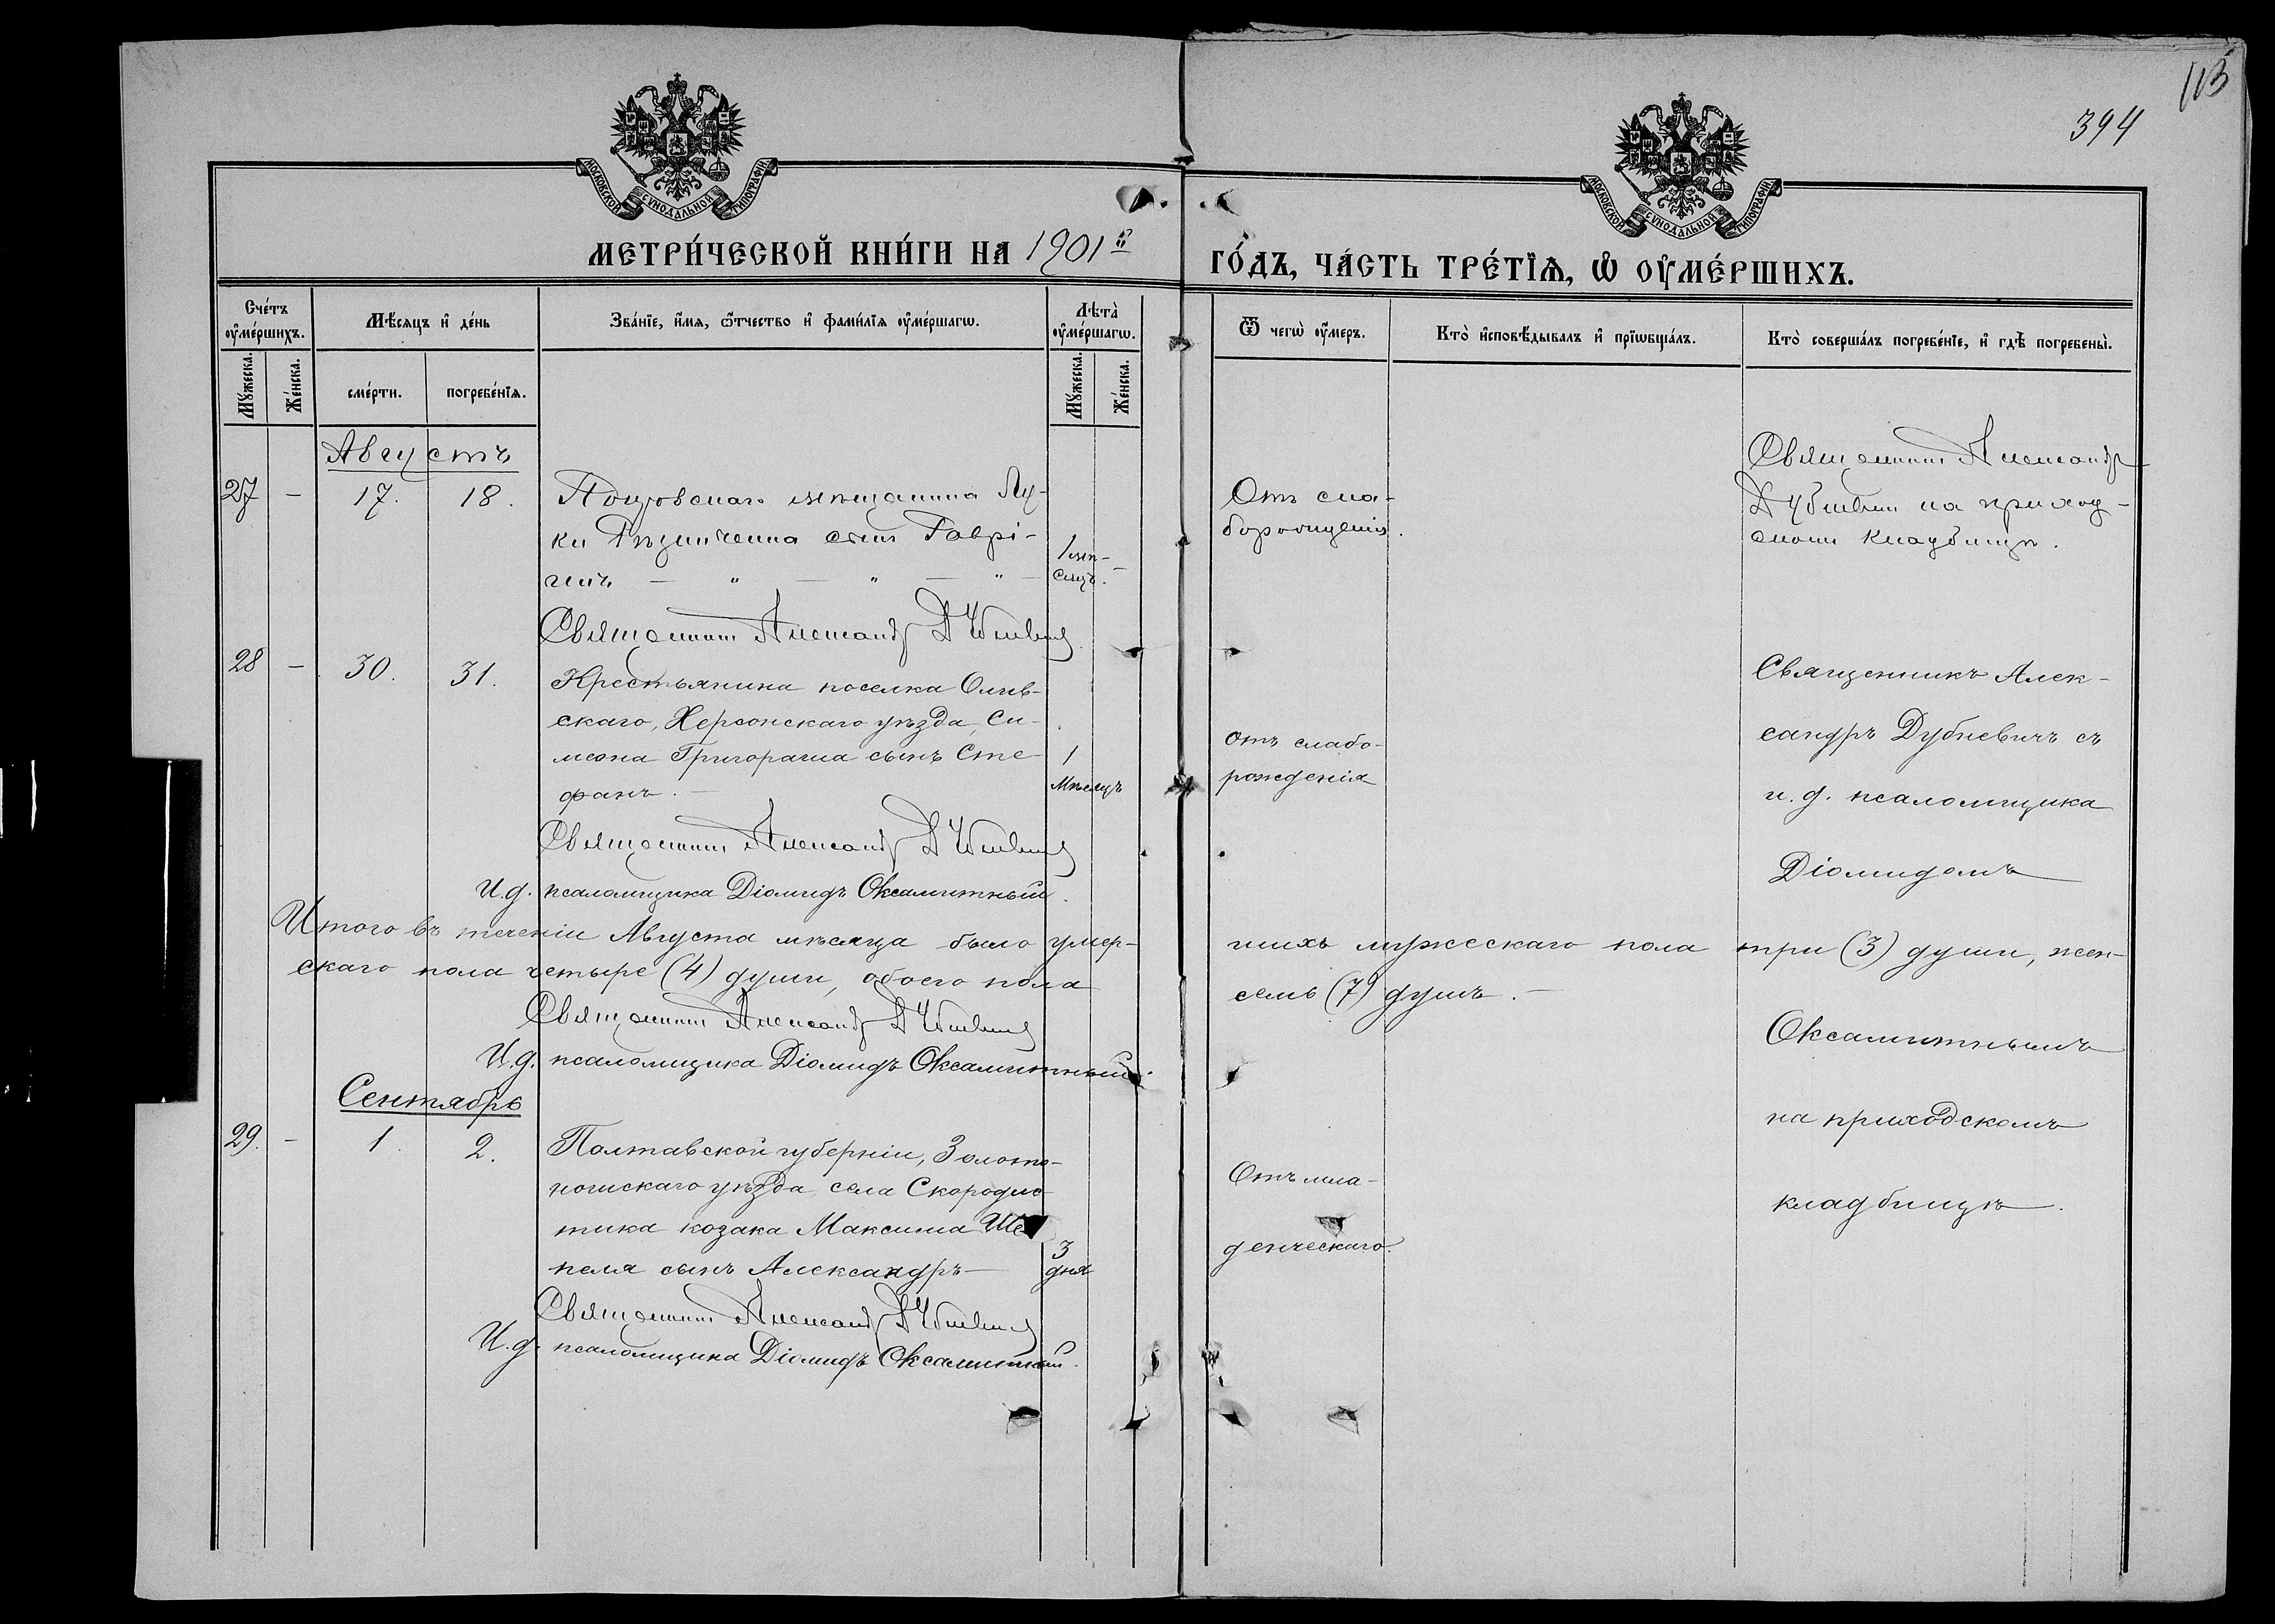 113
394
МОСКОВСКОЙ СѴНОДАЛЬНОЙ ТИПОГРАФІИ
МОСКОВСКОЙ СѴНОДАЛЬНОЙ ТИПОГРАФІИ
МЕТРИ́ЧЕСКОЙ КНИ́ГИ НА 1901й ГО́ДЪ, ЧА́СТЬ ТРЕ́ТІѦ, Ѡ҆ ОУ҆МЕ́РШИХЪ.
Сче́тъ оу҆ме́ршихъ.
Мѣ́сѧцъ и҆ де́нь
Зва́нїе, и҆́мѧ, ѻ҆́тчество и҆ фами́лїѧ оу҆ме́ршагѡ.
Лѣта̀ оу҆ме́ршагѡ.
Ѿ чегѡ̀ оу҆́меръ.
Кто̀ и҆сповѣ́дывалъ и҆ прїѡбща́лъ.
Кто̀ соверша́лъ погребе́нїе, и҆ гдѣ̀ погребены̀.
Мꙋ́жеска.
Же́нска.
сме́рти.
погребе́нїѧ.
Мꙋ́жеска.
Же́нска.
Августъ
27 – 17. 18. мѣщанина Лу-
ки сынъ Гаврі-
илъ — " — " — " —
1 мѣ-
сяцъ.
Отъ сла-
борожденія.
Священникъ Александръ
Дубневичъ на приход-
скомъ кладбищѣ.
Священникъ Александръ Дубневичъ
28 – 30. 31. Крестьянина поселка
скаго, Херсонскаго уѣзда, Си-
меона Григораша сынъ Сте-
фанъ. —
1
мѣсяцъ
отъ слабо-
рожденія
Священникъ Алек-
сандръ Дубневичъ съ
и. д. псаломщика
Діомидомъ
Оксамитнымъ
на приходскомъ
кладбищѣ.
Священникъ Александръ Дубневичъ
И.д. псаломщика Діомидъ Оксамитный.
Итого въ теченіи Августа мѣсяца было умер-шихъ мужескаго пола три (3) души, жен-
скаго пола четыре (4) души, обоего пола семь (7) душъ. —
Священникъ Александръ Дубневичъ
И.д. псаломщика Діомидъ Оксамитный.
Сентябрь
29. – 1. 2. Полтавской губерніи, Золото-
ношскаго уѣзда, села Скородис-
тика козака Максима Ше
пеля сынъ Александръ —
3
дня
Отъ мла-
денческаго.
Священникъ Александръ Дубневичъ
И.д. псаломщика Діомидъ Оксамитный.